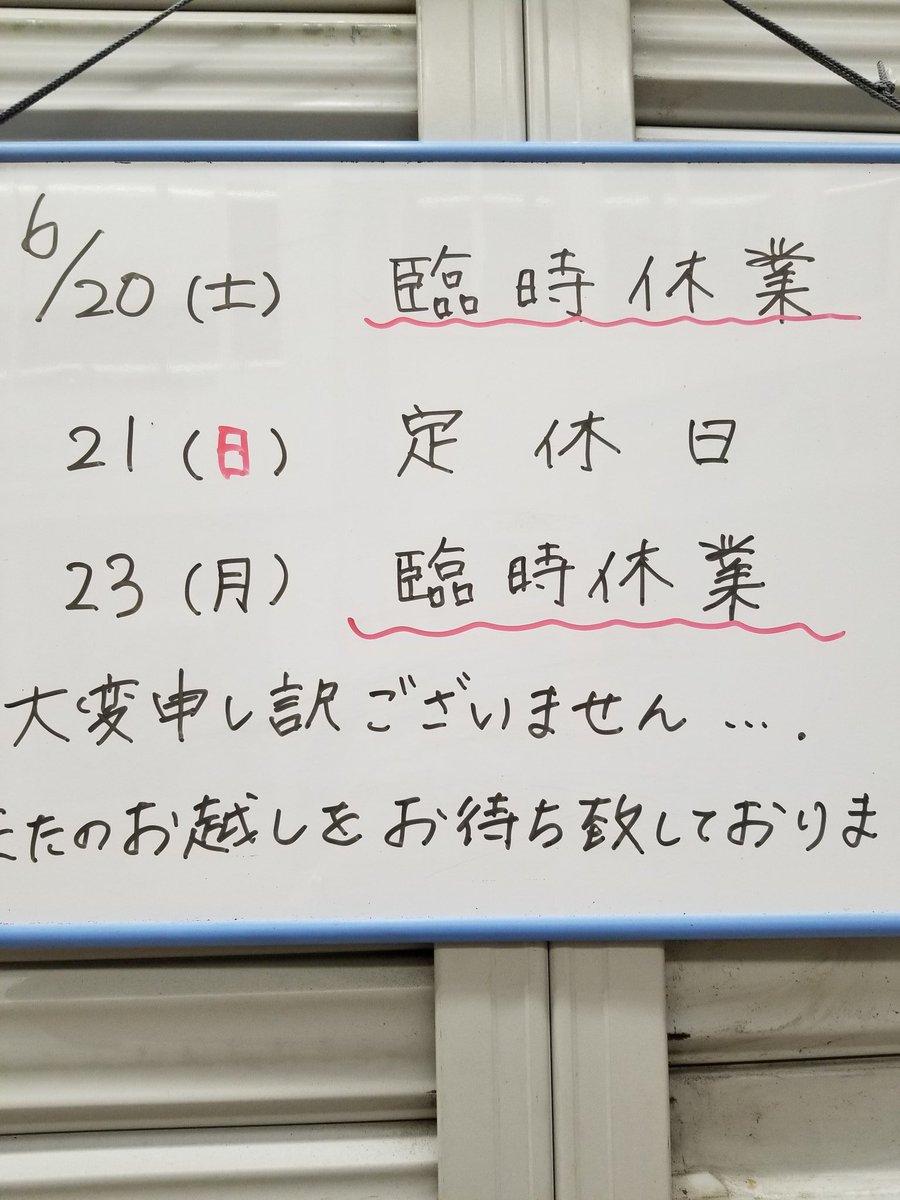 6/20(土) 臨時休業
21(日) 定休日
23(月) 臨時休業
大変申し訳ございません….
またのお越しをお待ち致しておりま